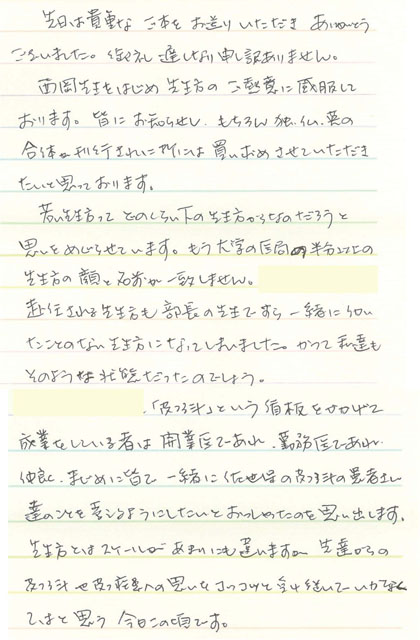 先日は貴重な ご本を お送り いただき ありがとう
ございました。御礼 遅くなり申し訳ありません。
西岡先生をはじめ 先生方の ご熱意に 感服して
おります。皆にお知らせし、もちろん 独、仏、英の
合体が刊行された時には 買い求めさせていただき
たいと思っております。
若い先生方って どのくらい下の先生方からなのだろうと
思いをめぐらせています。もう大学の医局の半分以上の
先生方の 顔と名前が一致しません。
赴任される先生方も 部長の先生ですら 一緒に働い
たことのない先生方になってしまいました。かつて 私達も
そのような状態だったのでしょう。
、「皮フ科」という看板をかかげて
業をしている者は 開業医であれ、勤務医であれ、
仲良く、まじめに皆で 一緒に 佐世保の皮フ科の患者さん
達のことを 考えるようにしたいと おっしゃったのを 思い出します。
先生方とはスケールが あまりにも違いますが 先達からの
皮フ科や皮フ疾患への思いを コツコツと 引き継いでいかなく
てはと思う 今日この頃です。